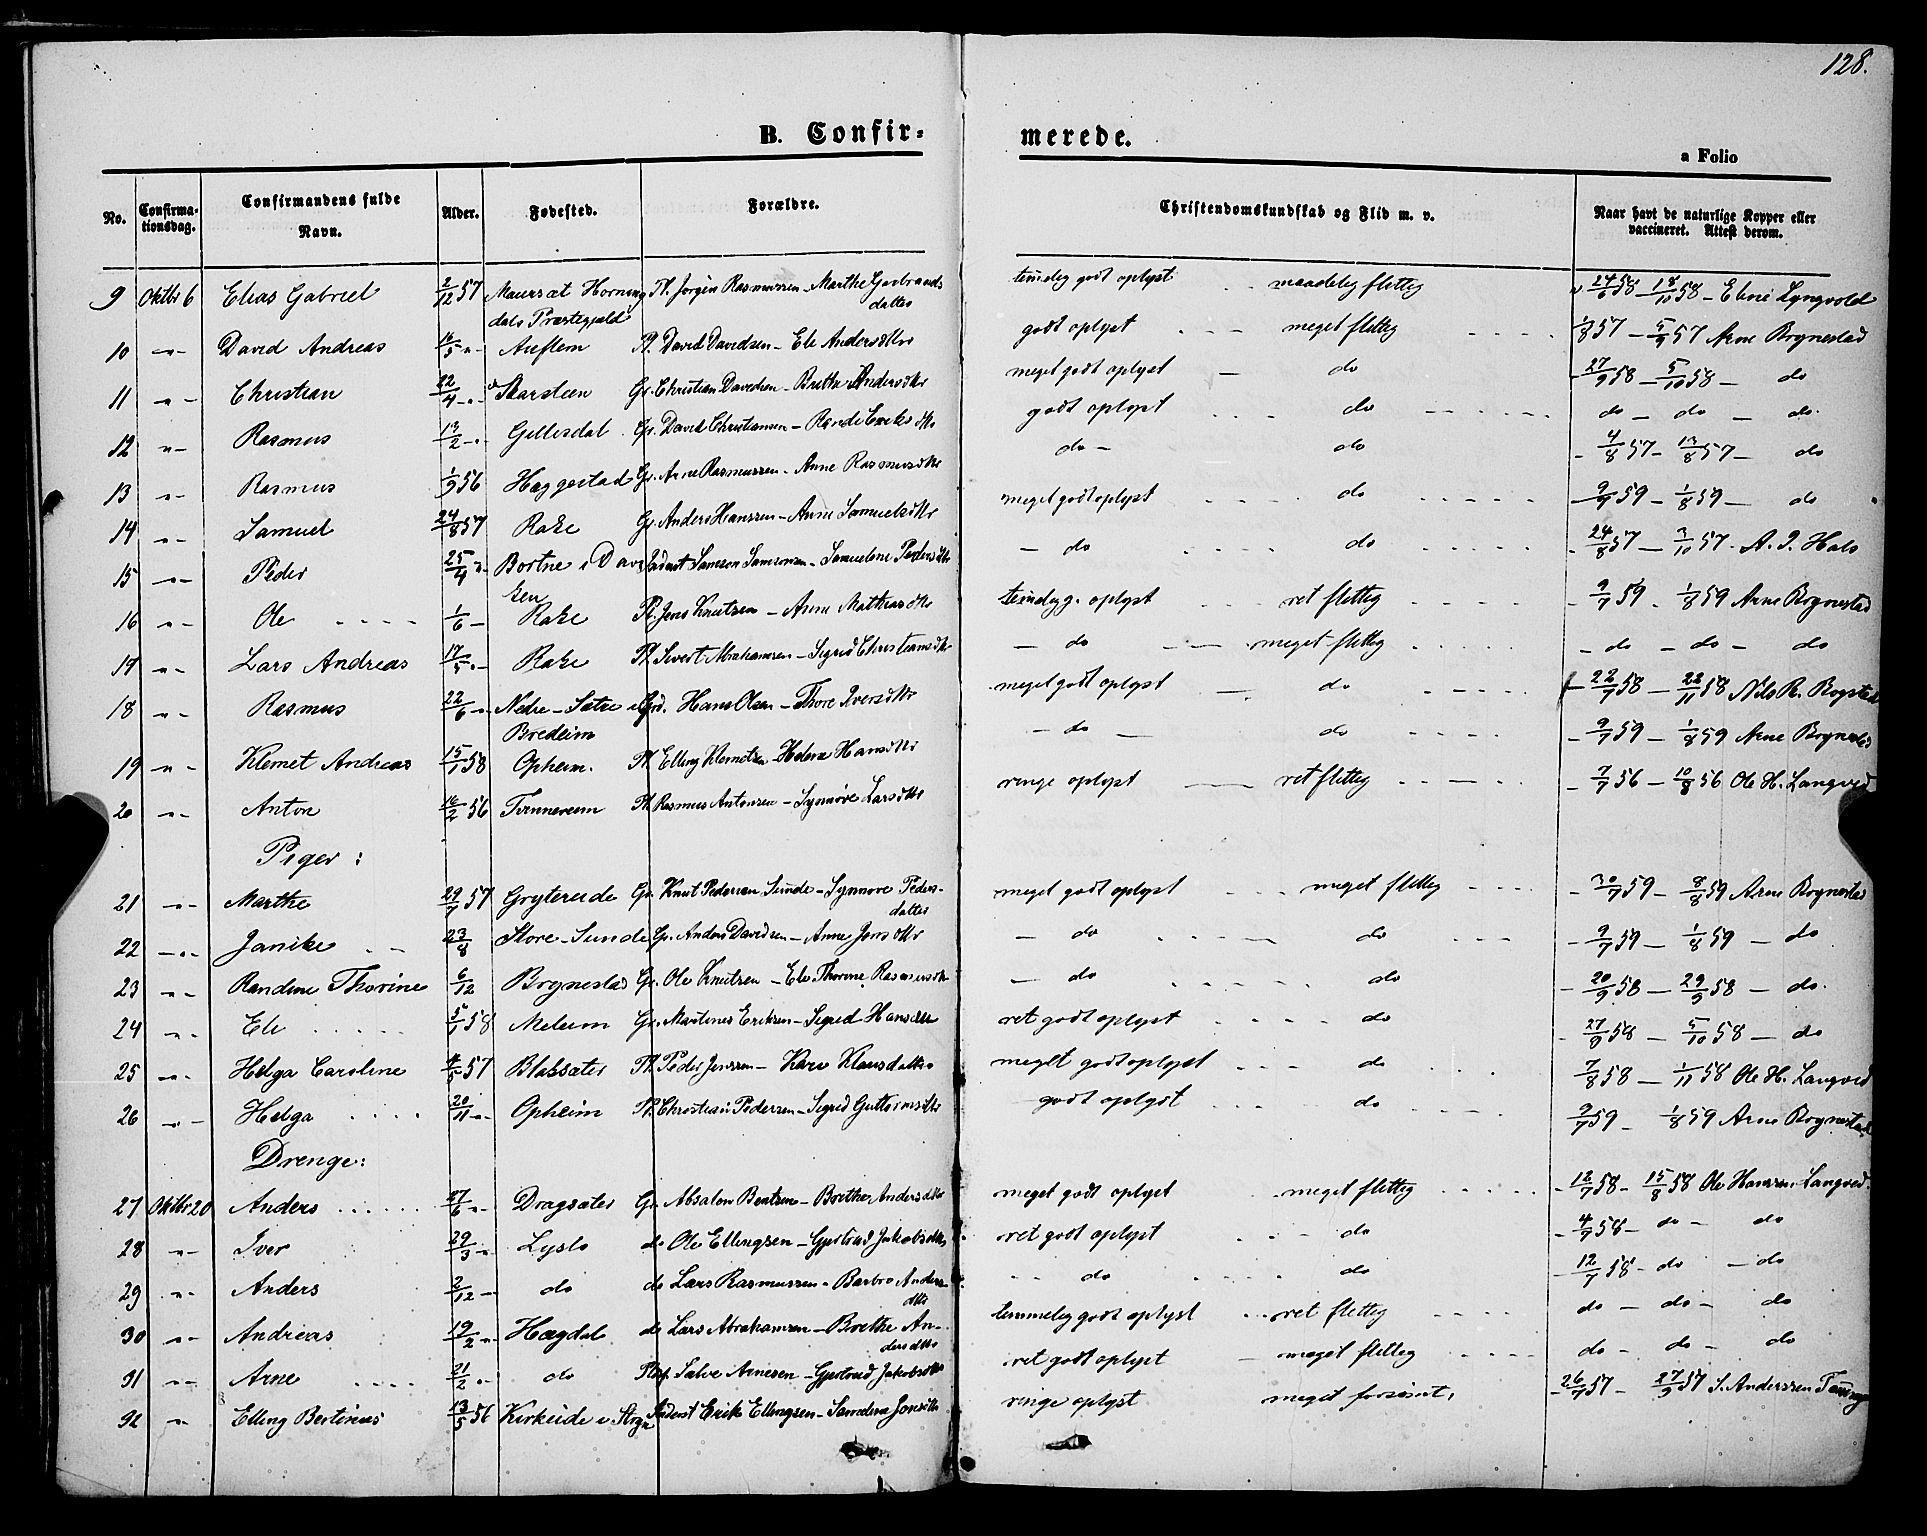 128.
B. Confir- merede.
a Folio
No. Confirma-tionsdag. Confirmandens fulde Navn. Alder. Fødested. Forældre. Christendomskundskab og Flid m. v. Naar havt de naturlige Kopper eller vaccineret. Attest derom.
9 Oktbr 6 Elias Gabriel 2/12 57 Maursæt Horning Pl. Jørgen Rasmussen - Marthe Gudbrands temelig godt oplyst maadelig flittig 24/6 58 - 18/10 58 - Eline Lyngvold
dals Præstegjæld datter
10 -"- David Andreas 16/5 "- Auflem Pl. David Davidsen - Eli Andersdtr godt oplyst meget flittig 1/8 57 - 5/9 57 Arne Brynestad
11 -"- Christian 22/4 -"- Starsteen Gr. Christian Davidsen - Brithe Andersdtr meget godt oplyst - do 27/9 58 - 5/10 58 - do
12 "- Rasmus 13/2 -" Gillesdal Gr. David Christiansen - Rande dtr godt oplyst do do - do - do.
13 -"- Rasmus 1/9 56 Heggestad Gr. Arne Rasmussen - Anne Rasmusdtr do - do - 4/8 57 - 13/8 57 - do
14 -"- Samuel 24/8 57 Rake Gr. Anders Hanssen - Anne Samuelsdtr meget godt oplyst do - 9/7 59 - 1/8 59 - do
15 -"- Peder 25/4 "- Bortne i Dave Inderst Samson Samsonsen - Samueline Pedersdtr - do do - 24/8 57 - 3/10 57. A. I. Hals
ken
16 -"- Ole 1/6 - Rake Pl. Jens Knutsen - Anne Mathiasdtr temelig. oplyst ret flittig - 9/7 59 - 1/8 59 Arne Brynestad
17 -"- Lars Andreas 17/5 "- Rake Pl. Sivert Abrahamsen - Sigrid Christiansdtr - do - meget flittig - do - do - do
18 -"- Rasmus 22/6 -" Nedre - Sætre i Grd. Hans Olsen - Thore Iversdtr meget godt oplyst - do - 22/7 58 - 22/11 58 Nils R. Brystad
Bredeim
19 -"- Klemet Andreas 15/1 58 Opheim. Pl. Elling Klemetsen - Helene Hansdtr - do - do - 9/7 59 - 1/8 59 Arne Brynestad
20 -"- Anton 16/2 56 Tinnereim Pl. Rasmus Antonsen - Synnøve Larsdtr ringe oplyst ret flittig - 7/7 56 - 10/8 56 Ole H. Langved
Piger:
21 -"- Marthe 29/7 57 Gryterude Gr. Knut Pedersen Sunde - Synnøve Peders- meget godt oplyst meget flittig - 30/7 59 - 8/8 59 Arne Brynestad
datter
22 -"- Janike 23/8 Store - Sunde Gr. Anders Davidsen - Anne Jonsdtr - do do - 9/7 59 - 1/8 59 - do
23 -"- Randine Thorine 6/12 Brynestad Gr. Ole Knutsen - Eli Thorine Rasmusdtr - do do - 20/9 58 - 29/9 58 - do.
24 -"- Eli 5/1 58 Meleim Gr. Martines Eriksen - Sigrid Hansdtr ret godt oplyst do - 27/9 58 - 5/10 58 - do
25 -"- Helga Caroline 4/5 57 Blaksæter Pl. Peder Jenssen - Kari Klausdatter meget godt oplyst do 7/8 58 - 1/11 58 Ole H. Langved
26 -"- Helga 20/11 "- Opheim Pl. Christian Pedersen - Sigrid Guttormsdtr godt oplyst do 9/7 59 - 1/8 59 Arne Brynestad
Drenge:
27 Oktbr 20 Anders 27/6 "- Dragsæter Gr. Absalon Bentsen - Brethe Andersdtr meget godt oplyst meget flittig - 12/7 58 - 15/8 58 Ole Hanssen Langved.
28 "- Iver 29/3 -" Lyslo do Ole Ellingsen - Gjertrud Jakobsdtr ret godt oplyst do - 4/7 58 - do - do
29 -"- Anders 2/12 -" do do Lars Rasmussen - Barbro Anders do do - 12/7 58 - do - do
dtr
30 -"- Andreas 19/2 "- Hægdal do Lars Abrahamsen - Brethe An- temmelig godt oplyst ret flittig do - do - do
dersdtr
31 -"- Arne 21/2 "- do Plf. Salve Arnesen - Gjertrud Jakobsdtr ret godt oplyst - meget flittig do - do - do
32 -"- Elling Bertinus 13/5 56 Kirkeide i Stryn Inderst Erik Ellingsen - Samline Jonsdtr ringe oplyst meget forsømt, - 26/7 57 - 27/9 57 S. Anderssen